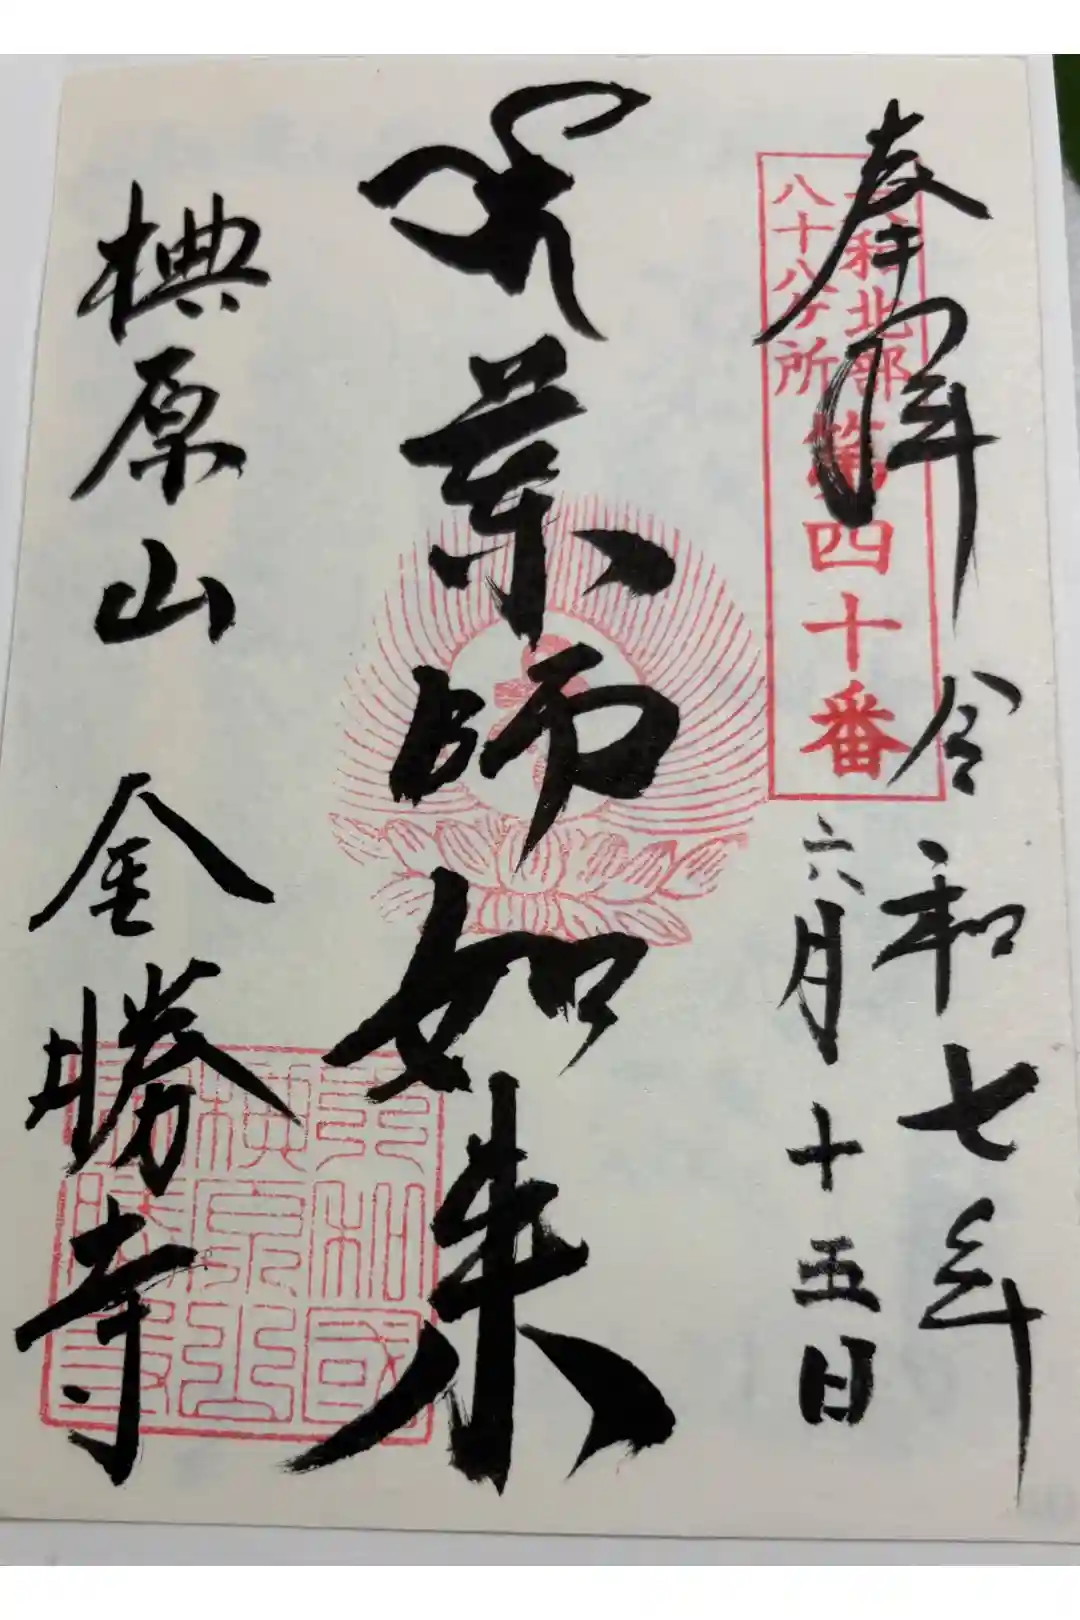 奉拝
令和七年
六月十五日
大和北部
八十八ヶ所
第四十番
薬師如来
椣原山
金勝寺